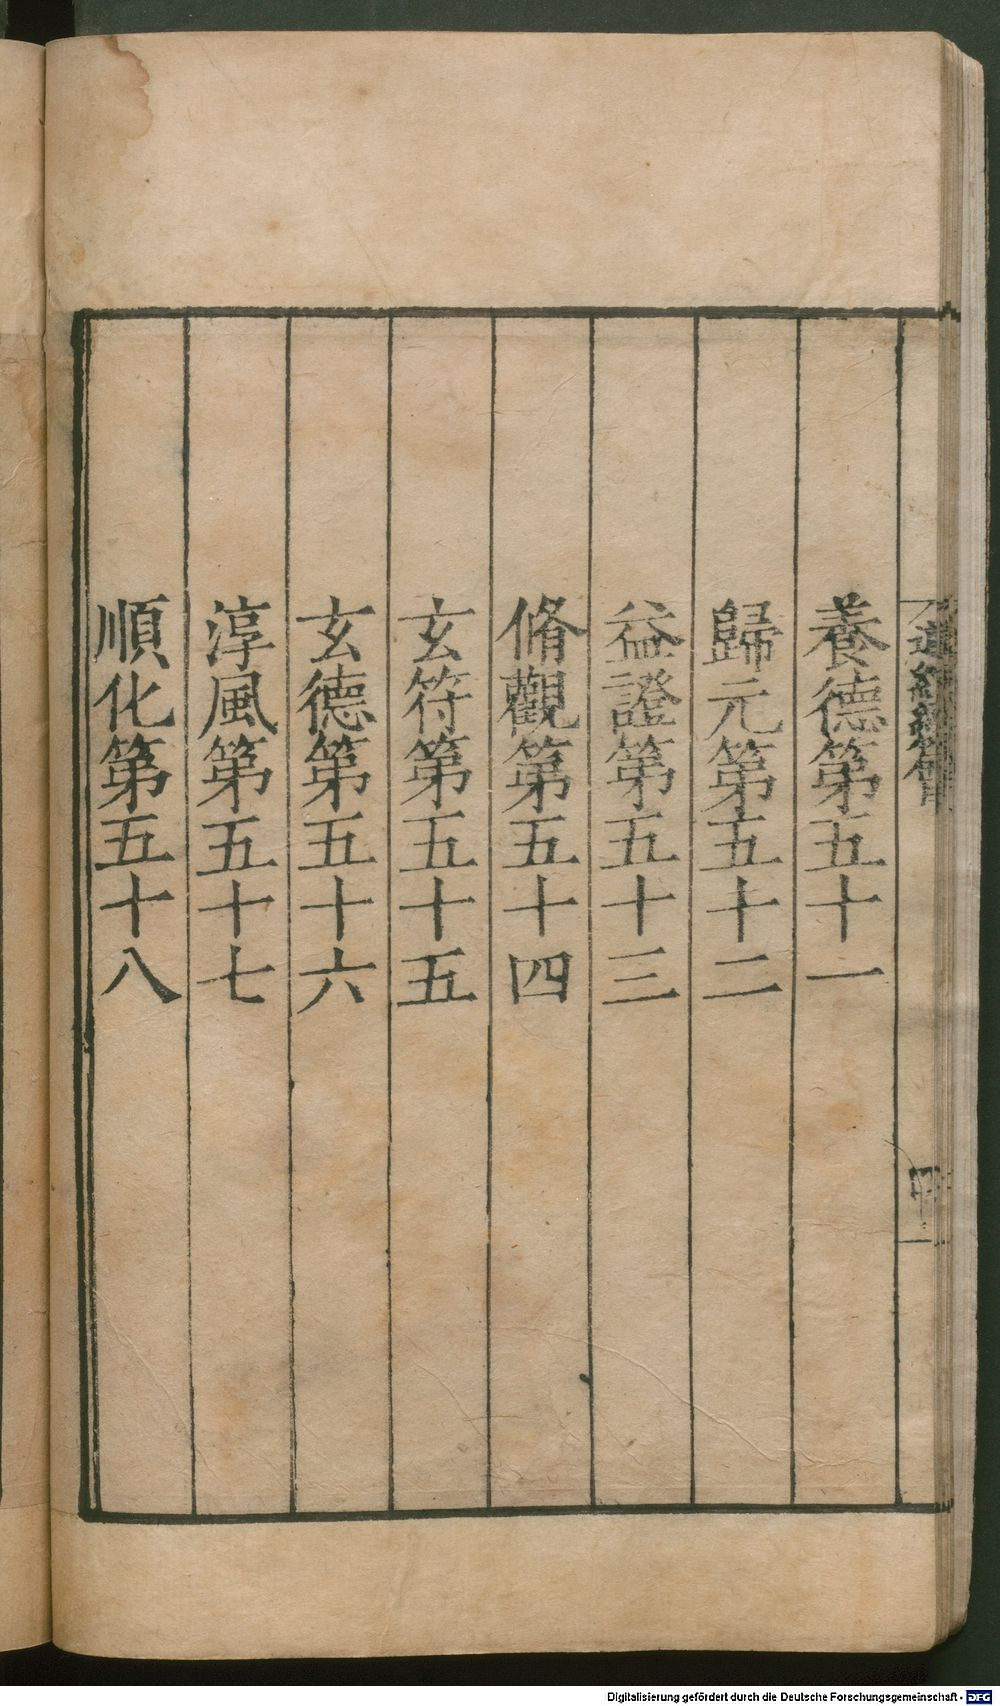 養德第五十一
歸元第五十二
益證第五十三
脩觀第五十四
玄符第五十五
玄德第五十六
淳風第五十七
順化第五十八
Digitalisierung gefördert durch die Deutsche Forschungsgemeinschaft - DFG